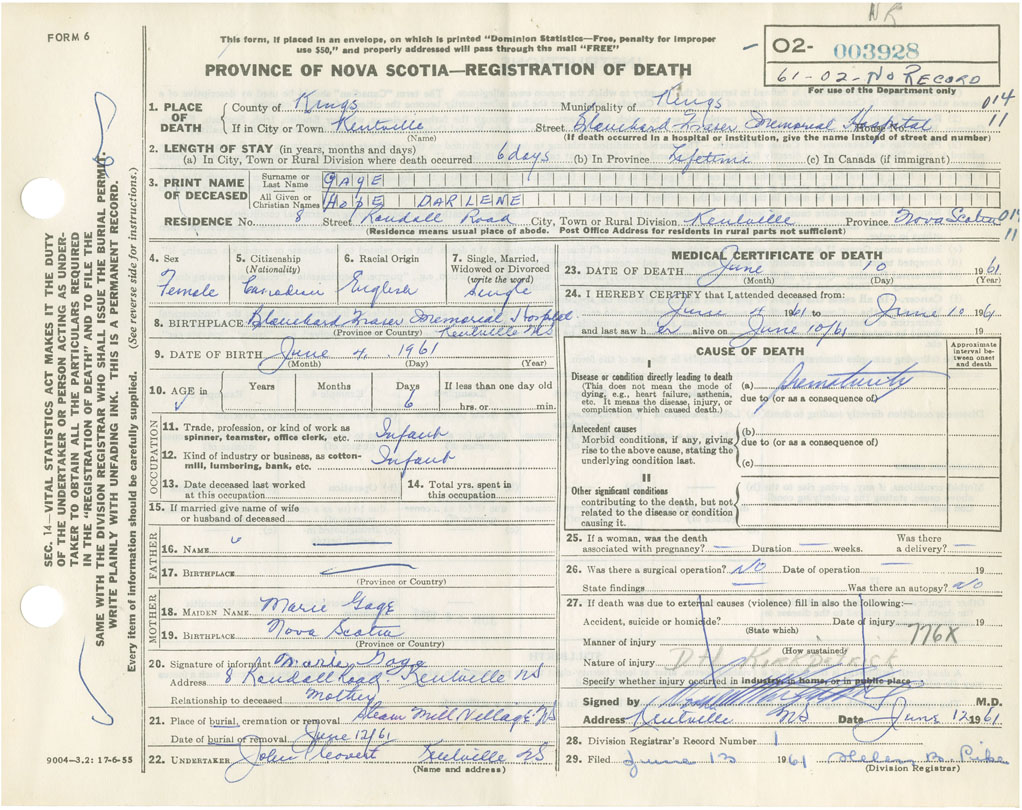 NR
FORM 6
This form, if placed in an envelope, on which is printed "Dominion Statistics—Free, penalty for improper
use $50," and properly addressed will pass through the mail "FREE"
02- 003928
61-02-No RECORD
For use of the Department only
PROVINCE OF NOVA SCOTIA—REGISTRATION OF DEATH
1. PLACE OF DEATH
County of Kings Municipality of Kings 014
If in City or Town Kentville Street Blanchard Fraser Memorial Hospital House No. 11
(Name) (If death occurred in a hospital or institution, give the name instead of street and number)
2. LENGTH OF STAY (in years, months and days)
(a) In City, Town or Rural Division where death occurred 6 days (b) In Province Lifetime (c) In Canada (if immigrant)
3. PRINT NAME OF DECEASED
Surname or Last Name GAGE
All Given or Christian Names HOPE DARLENE
RESIDENCE No. 8 Street Randall Road City, Town or Rural Division Kentville Province Nova Scotia 014
11
(Residence means usual place of abode. Post Office Address for residents in rural parts not sufficient)
4. Sex Female
5. Citizenship (Nationality) Canadian
6. Racial Origin English
7. Single, Married, Widowed or Divorced (write the word) Single
8. BIRTHPLACE Blanchard Fraser Memorial Hospital
(Province or Country) Kentville NS
9. DATE OF BIRTH June 4, 1961
(Month) (Day) (Year)
10. AGE in Years Months Days 6 If less than one day old hrs. or min.
OCCUPATION
11. Trade, profession, or kind of work as spinner, teamster, office clerk, etc. Infant
12. Kind of industry or business, as cotton-mill, lumbering, bank, etc. Infant
13. Date deceased last worked at this occupation
14. Total yrs. spent in this occupation
15. If married give name of wife or husband of deceased
FATHER
16. NAME
17. BIRTHPLACE
(Province or Country)
MOTHER
18. MAIDEN NAME Marie Gage
19. BIRTHPLACE Nova Scotia
(Province or Country)
20. Signature of informant Marie Gage
Address 8 Randall Road Kentville NS
Relationship to deceased Mother
21. Place of burial, cremation or removal Steam Mill Village NS
Date of burial or removal June 12/61
22. UNDERTAKER John Kentville NS
(Name and address)
9004—3,2: 17-6-55
MEDICAL CERTIFICATE OF DEATH
23. DATE OF DEATH June 10 1961
(Month) (Day) (Year)
24. I HEREBY CERTIFY that I attended deceased from:
June 4 1961 to June 10 1961
and last saw her alive on June 10/61 19
CAUSE OF DEATH
Approximate interval between onset and death
I
Disease or condition directly leading to death (a) Prematurity
(This does not mean the mode of dying, e.g., heart failure, asthenia, etc. It means the disease, injury, or complication which caused death.)
due to (or as a consequence of)
Antecedent causes
Morbid conditions, if any, giving rise to the above cause, stating the underlying condition last.
(b)
due to (or as a consequence of)
(c)
II
Other significant conditions
contributing to the death, but not related to the disease or condition causing it.
25. If a woman, was the death associated with pregnancy? Duration weeks. Was there a delivery?
26. Was there a surgical operation? No Date of operation 19
State findings Was there an autopsy? No
27. If death was due to external causes (violence) fill in also the following:—
Accident, suicide or homicide? Date of injury 19
(State which)
776X
Manner of injury
(How sustained)
Nature of injury DH Kirkpatrick
Specify whether injury occurred in industry, in home, or in public place
Signed by M.D.
Address Kentville NS Date June 12 1961
28. Division Registrar's Record Number 1
29. Filed June 13 1961 Helen B. Pike
(Division Registrar)
SEC. 14—VITAL STATISTICS ACT MAKES IT THE DUTY
OF THE UNDERTAKER OR PERSON ACTING AS UNDER-
TAKER TO OBTAIN ALL THE PARTICULARS REQUIRED
IN THE "REGISTRATION OF DEATH" AND TO FILE THE
SAME WITH THE DIVISION REGISTRAR WHO SHALL ISSUE THE BURIAL PERMIT.
WRITE PLAINLY WITH UNFADING INK. THIS IS A PERMANENT RECORD.
Every item of Information should be carefully supplied. (See reverse side for instructions.)